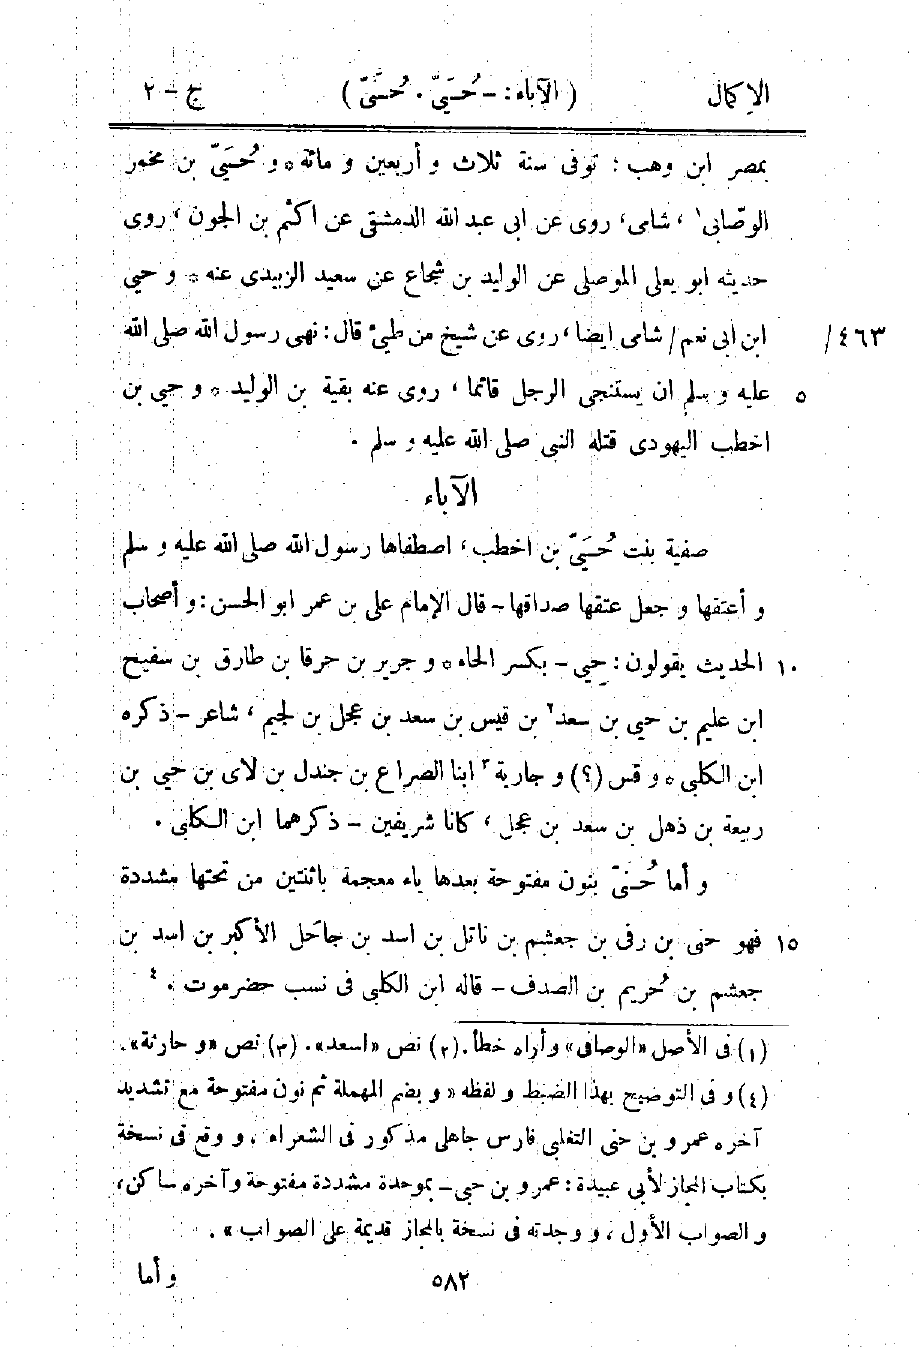 الإكمال ( الآباء: - حُيَيّ . حُنَيّ ) ج - ٢
بمصر ابن وهب : توفى سنة ثلاث و أربعين و مائة ٭ و حُيَيّ بن مخمر
الوصّابي١ ، شامى، روى عن ابى عبد الله الدمشقى عن اكثم بن الجون ، روى
حديثه ابو يعلى الموصلى عن الوليد بن شجاع عن سعيد الزبيدى عنه ٭ و حيي
ابن ابى نعم / شامى ايضا ، روى عن شيخ من طيئ قال : نهى رسول الله صلى الله /٤٦٣
عليه و سلم ان يستنجى الرجل قائما ، روى عنه بقية بن الوليد ٭ و حيي بن ٥
اخطب اليهودى قتله النبي صلى الله عليه و سلم .
الآباء
صفية بنت حُيَيّ بن اخطب ، اصطفاها رسول الله صلى الله عليه و سلم
و أعتقها و جعل عتقها صداقها - قال الإمام على بن عمر ابو الحسن : و أصحاب
الحديث يقولون : حِيي - بكسر الحاء ٭ و جرير بن حرقا بن طارق بن سفيح ١٠
ابن عليم بن حيي بن سعد٢ بن قيس بن سعد بن عجل بن لجيم ، شاعر - ذكره
ابن الكلبى ٭ و قس (؟) و جارية٣ ابنا الصراع بن جندل بن لاى بن حيي بن
ربيعة بن ذهل بن سعد بن عجل ، كانا شريفين - ذكرهما ابن الكلبى .
و أما حُنَيّ بنون مفتوحة بعدها ياء معجمة باثنتين من تحتها مشددة
فهو حنى بن رفى بن جعشم بن ناتل بن اسد بن جاحل الأكبر بن اسد بن ١٥
جعشم بن حُريم بن الصدف - قاله ابن الكلبى فى نسب حضرموت .٤
(١) فى الأصل «الوصافى» وأراه خطأ. (٢) نص «اسعد». (٣) نص «و حارثة».
(٤) و فى التوضيح بهذا الضبط و لفظه « و بضم المهملة ثم نون مفتوحة مع تشديد
آخره عمرو بن حنى التغلبى فارس جاهلى مذكور فى الشعراء ، و وقع فى نسخة
بكتاب المجاز لأبى عبيدة : عمرو بن حبي - بموحدة مشددة مفتوحة و آخره ساكن،
و الصواب الأول ، و وجدته فى نسخة بالمجاز قديمة على الصواب » .
٥٨٢ و أما